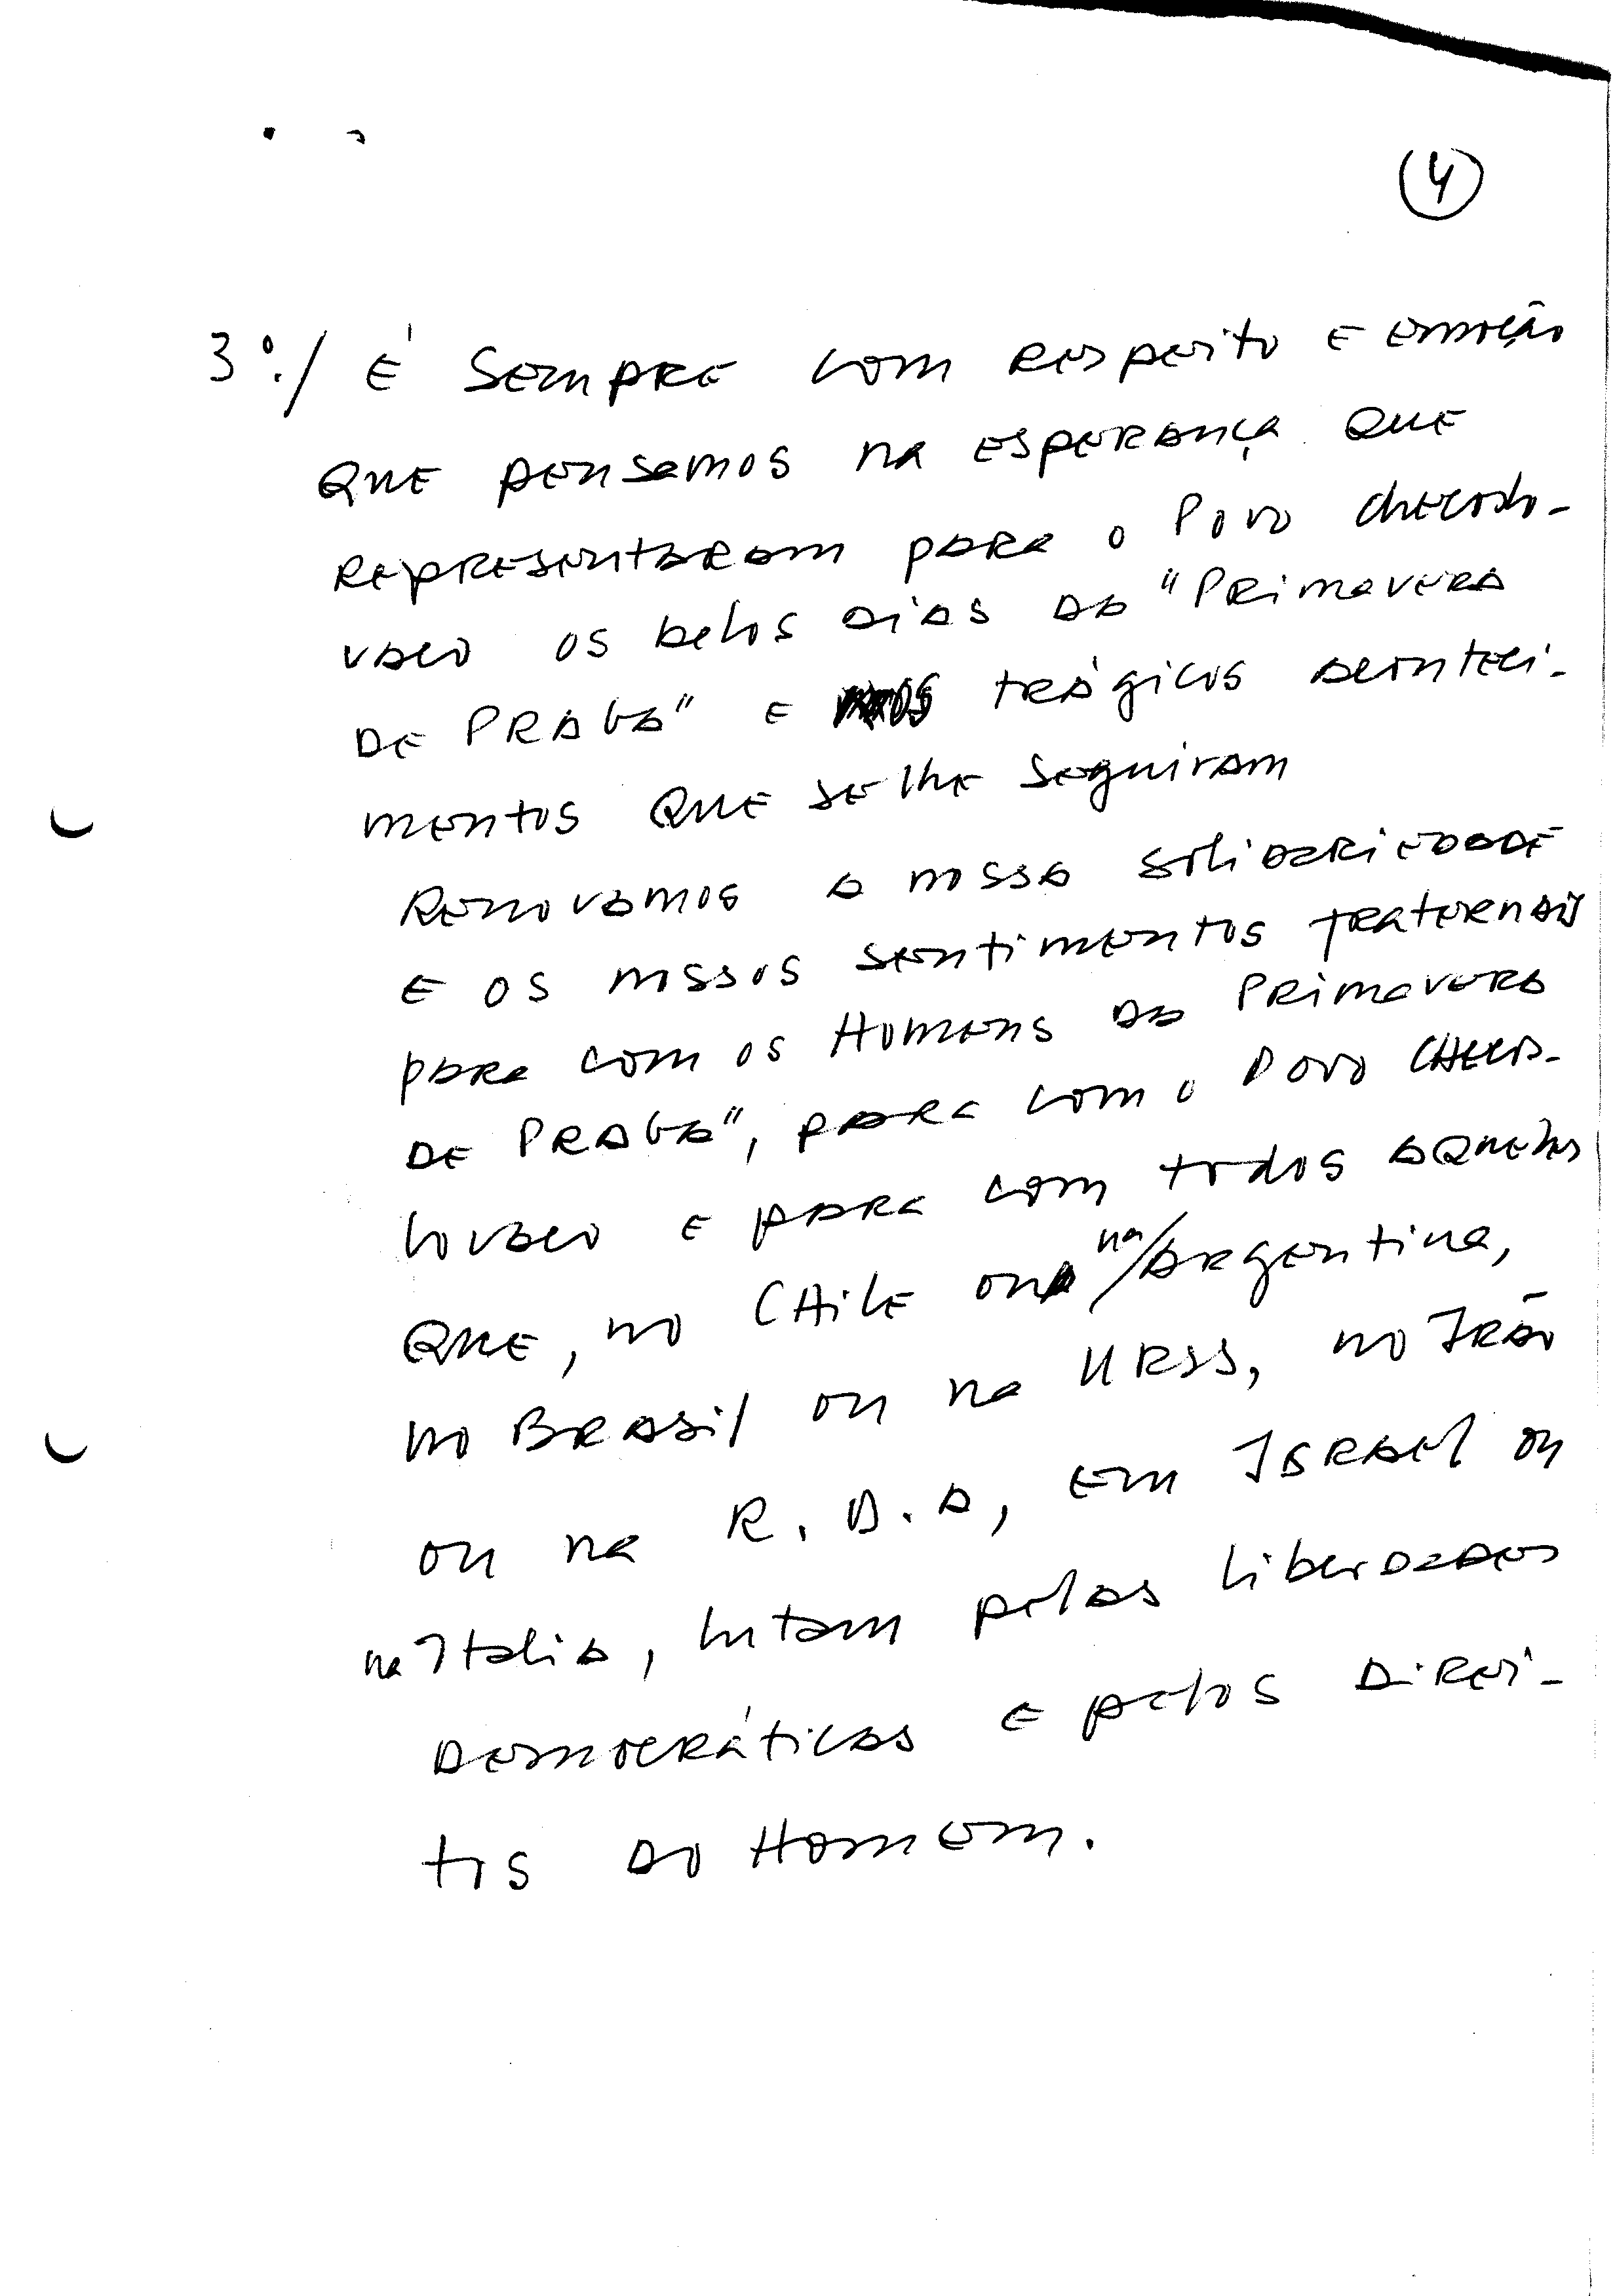 4
3º/ É sempre com respeito e emoção
que pensamos na esperança que
representaram para o Povo checoslo-
vaco os belos dias da "Primavera
de Praga" e os trágicos aconteci-
mentos que se lhe seguiram
Renovamos a nossa solidariedade
e os nossos sentimentos fraternais
para com os Homens da Primavera
de Praga", para com o Povo checos-
lovaco e para com todos aqueles
que, no Chile ou na/Argentina,
no Brasil ou na URSS, no Irão
ou na R.D.A, em Israel ou
na Italia, lutam pelas liberdades
Democráticas e pelos Direi-
tos do Homem.